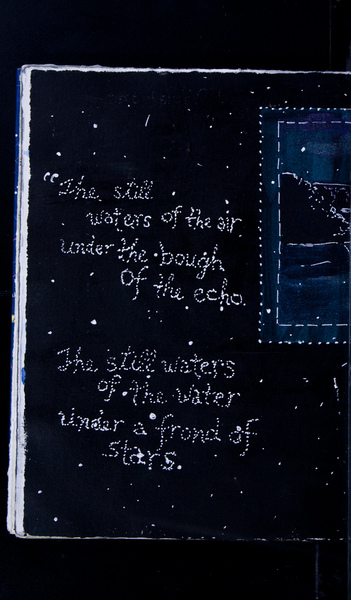 “The still
waters of the air
under the bough
Of the echo.
The still waters
of the water
under a frond of
stars.